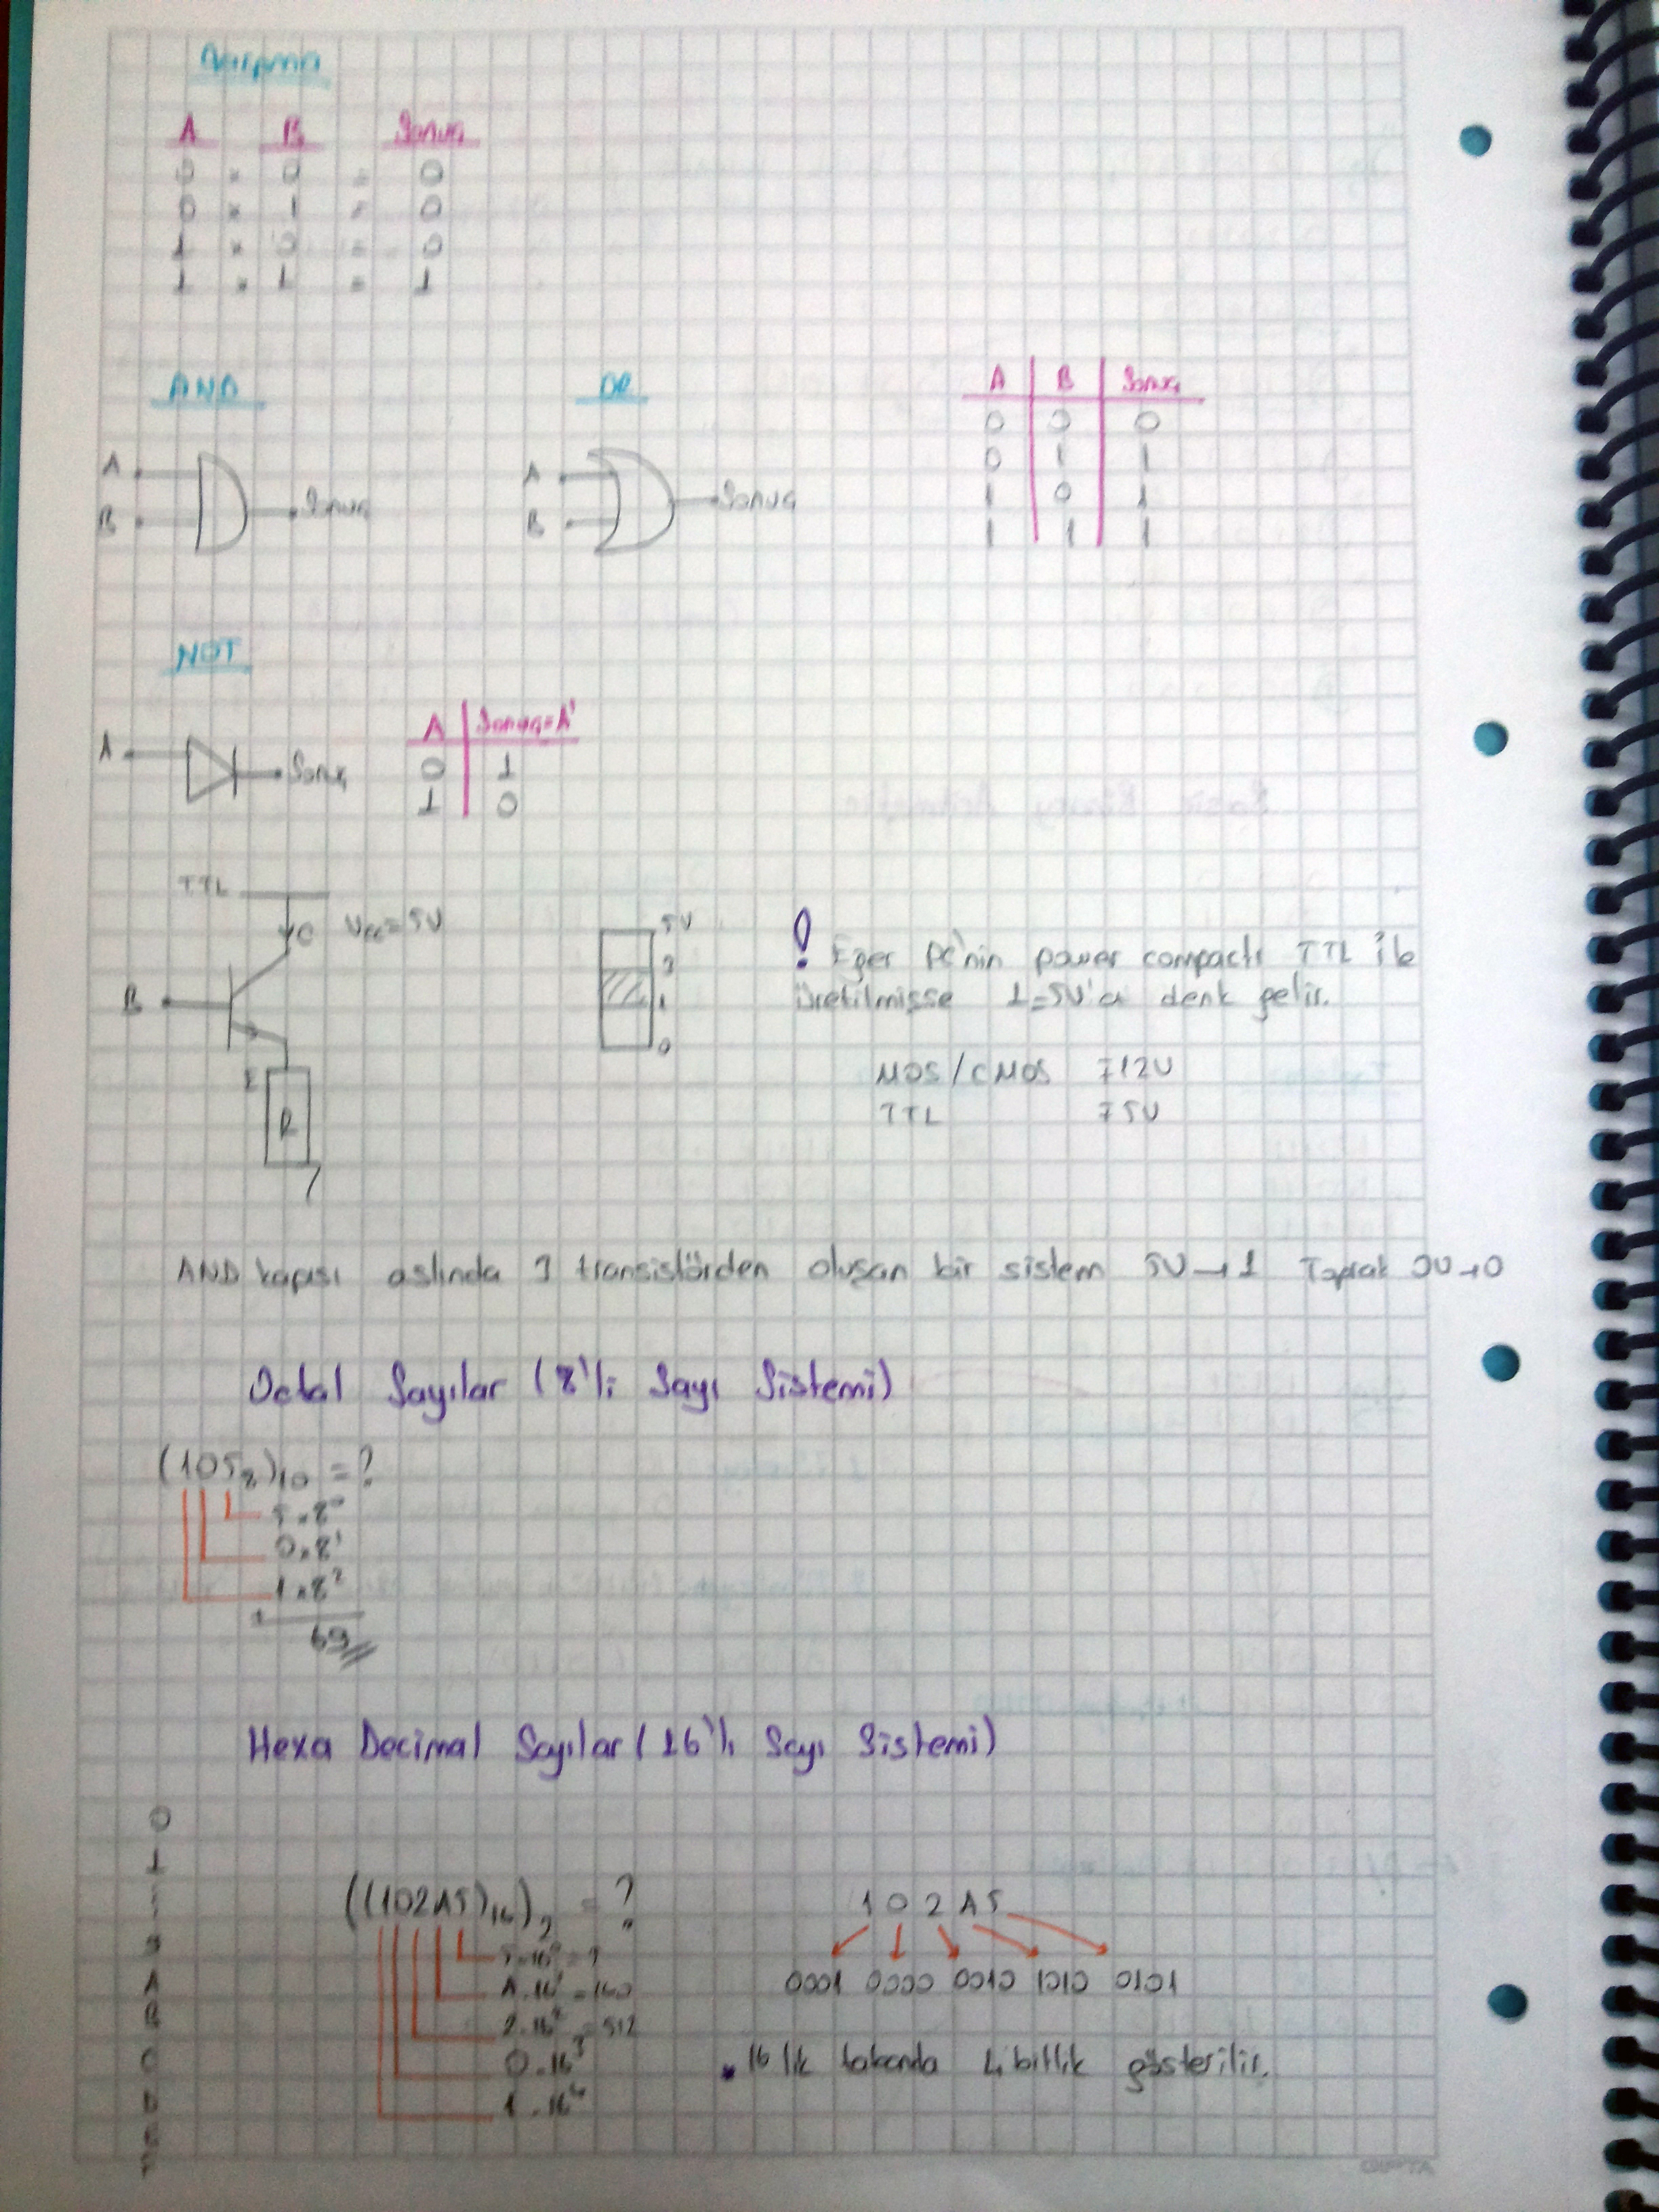 Çarpma
A B Sonuç
0 x 0 = 0
0 x 1 = 0
1 x 0 = 0
1 x 1 = 1
AND
A
B
Sonuç
OR
A
B
Sonuç
A B Sonuç
0 0 0
0 1 1
1 0 1
1 1 1
NOT
A
Sonuç
A Sonuç=A'
0 1
1 0
TTL
C Vcc=5V
B
E
R
5V
3
1
0
! Eğer PC'nin power compactı TTL ile
üretilmişse 1=5V'a denk gelir.
MOS/CMOS ∓12V
TTL ∓5V
AND kapısı aslında 3 transistörden oluşan bir sistem 5V→1 Toprak 0V→0
Octal Sayılar (8'li Sayı Sistemi)
(105₈)₁₀ = ?
5.8⁰
0.8¹
1.8²
+
69
Hexa Decimal Sayılar (16'lı Sayı Sistemi)
0
1
9
A
B
C
D
E
F
((102A5)₁₆)₂ = ?
A.16¹ = 160
2.16² = 512
0.16³
1.16⁴
1 0 2 A 5
0001 0000 0010 1010 0101
• 16 lık tabanda 4 bitlik gösterilir.
GIPTA